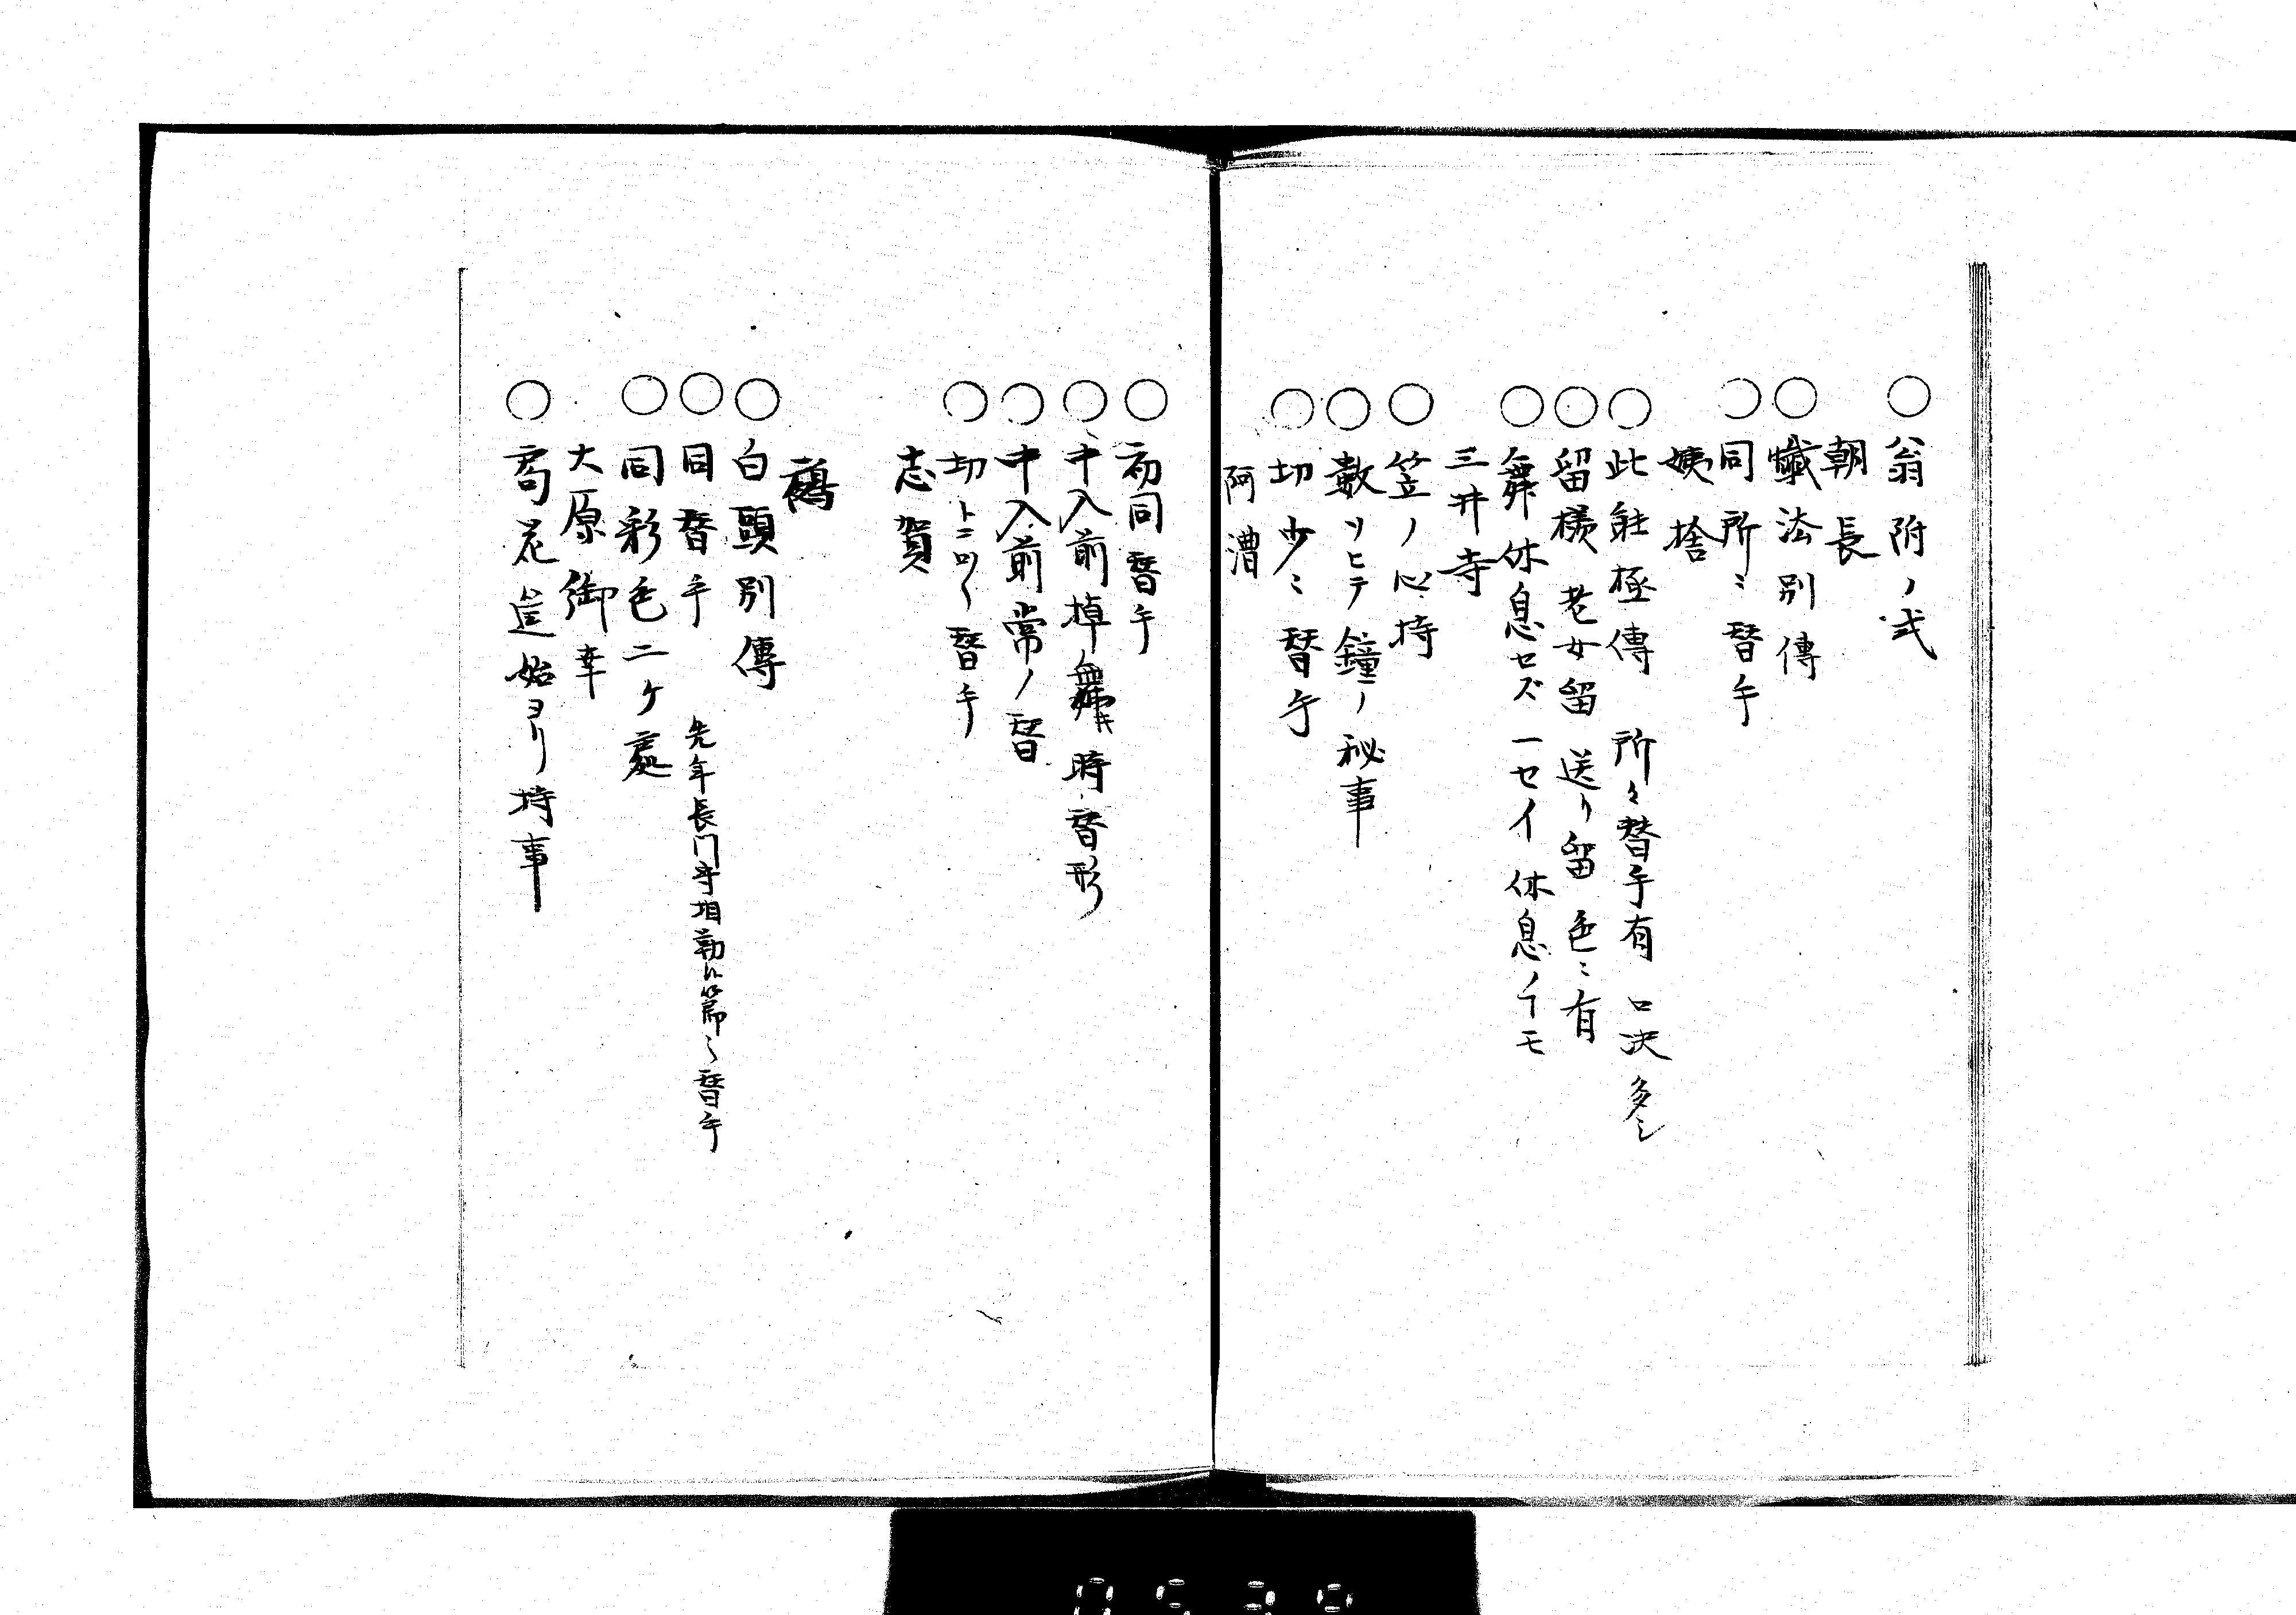 ○翁附ノ式
朝長
○懺法別傳
○同所ミ替手
姨捨
○此能極傳 所々替手有 口决多シ
○留様 老女留 送リ留 色ミ有
○舞休息セズ一セイ休息ノイモ
三井寺
○笠ノ心持
○數ソヒテ鐘ノ秘事
○切少ミ替手
阿漕
○初同替手
○中入前棹舞キ時替形
○中入前常ノ替
○切替手
志賀
鵺
○白頭別傳
○同替手 先年長門守相勤替手
○同彩色二ケ處
大原御幸
○花筐始ヨリ持事